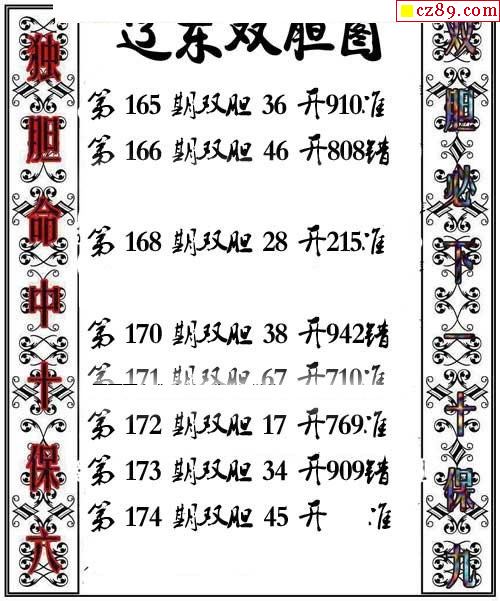 cz89.com
辽东双胆图
独胆命中十保六
第 165 期双胆 36 开910准
第 166 期双胆 46 开808错
第 168 期双胆 28 开215准
第 170 期双胆 38 开942错
第 171 期双胆 67 开710准
第 172 期双胆 17 开769准
第 173 期双胆 34 开909错
第 174 期双胆 45 开 准
双胆必下一十保九